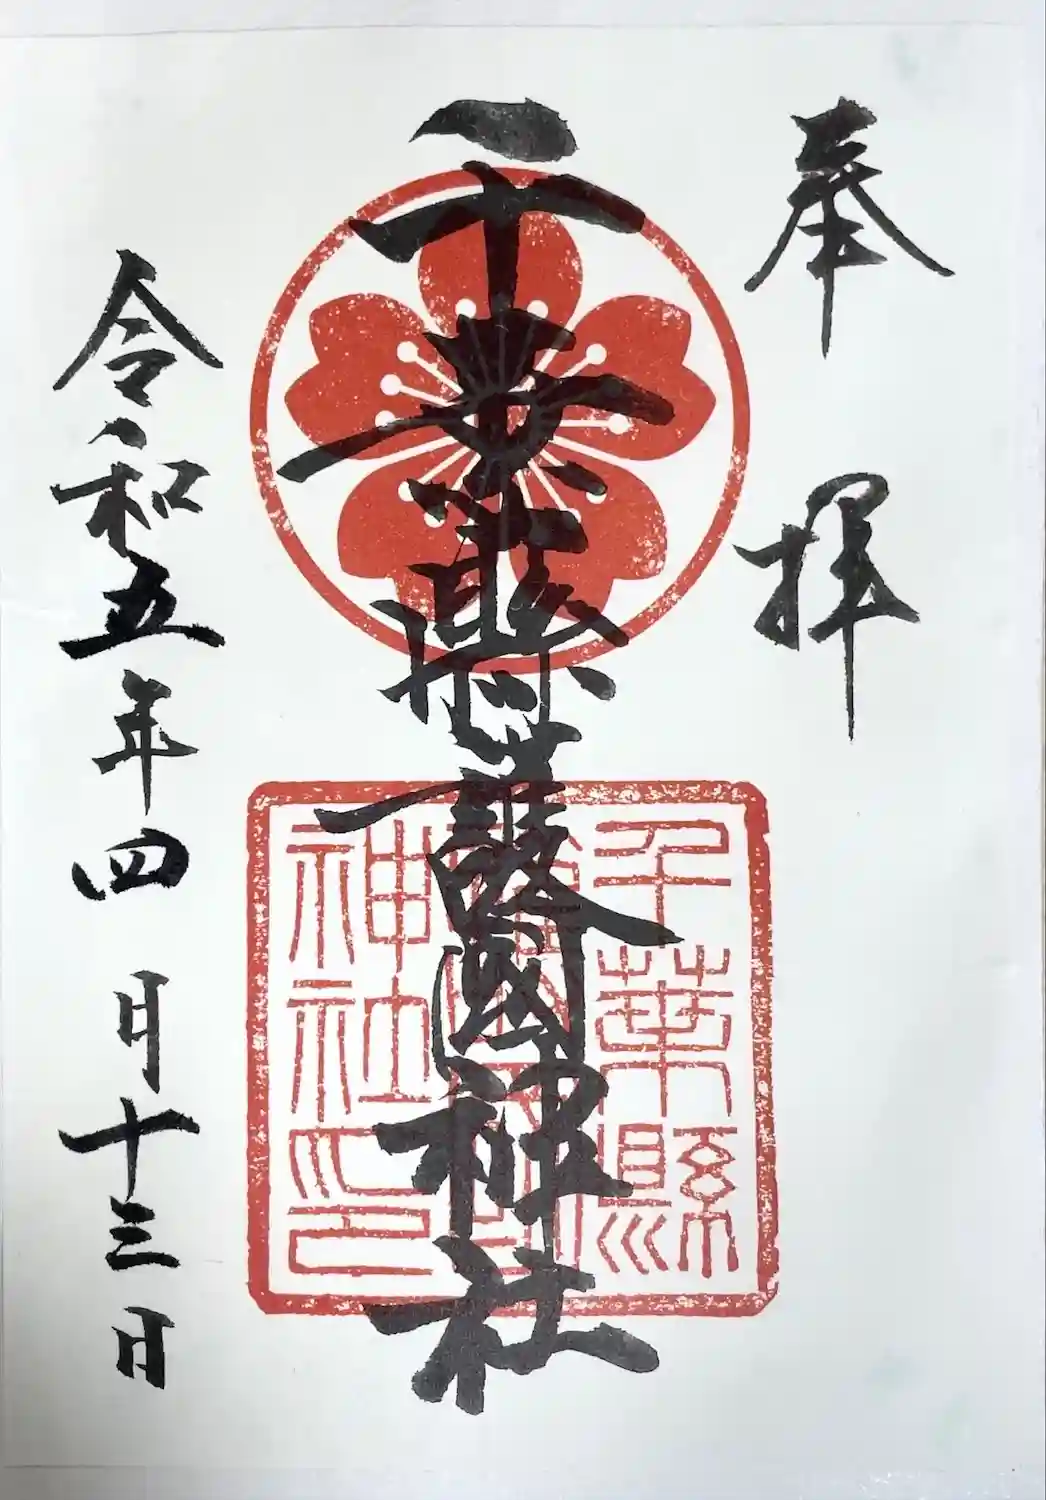 奉拝
千葉縣護國神社
千葉縣
護國
神社印
令和五年四月十三日